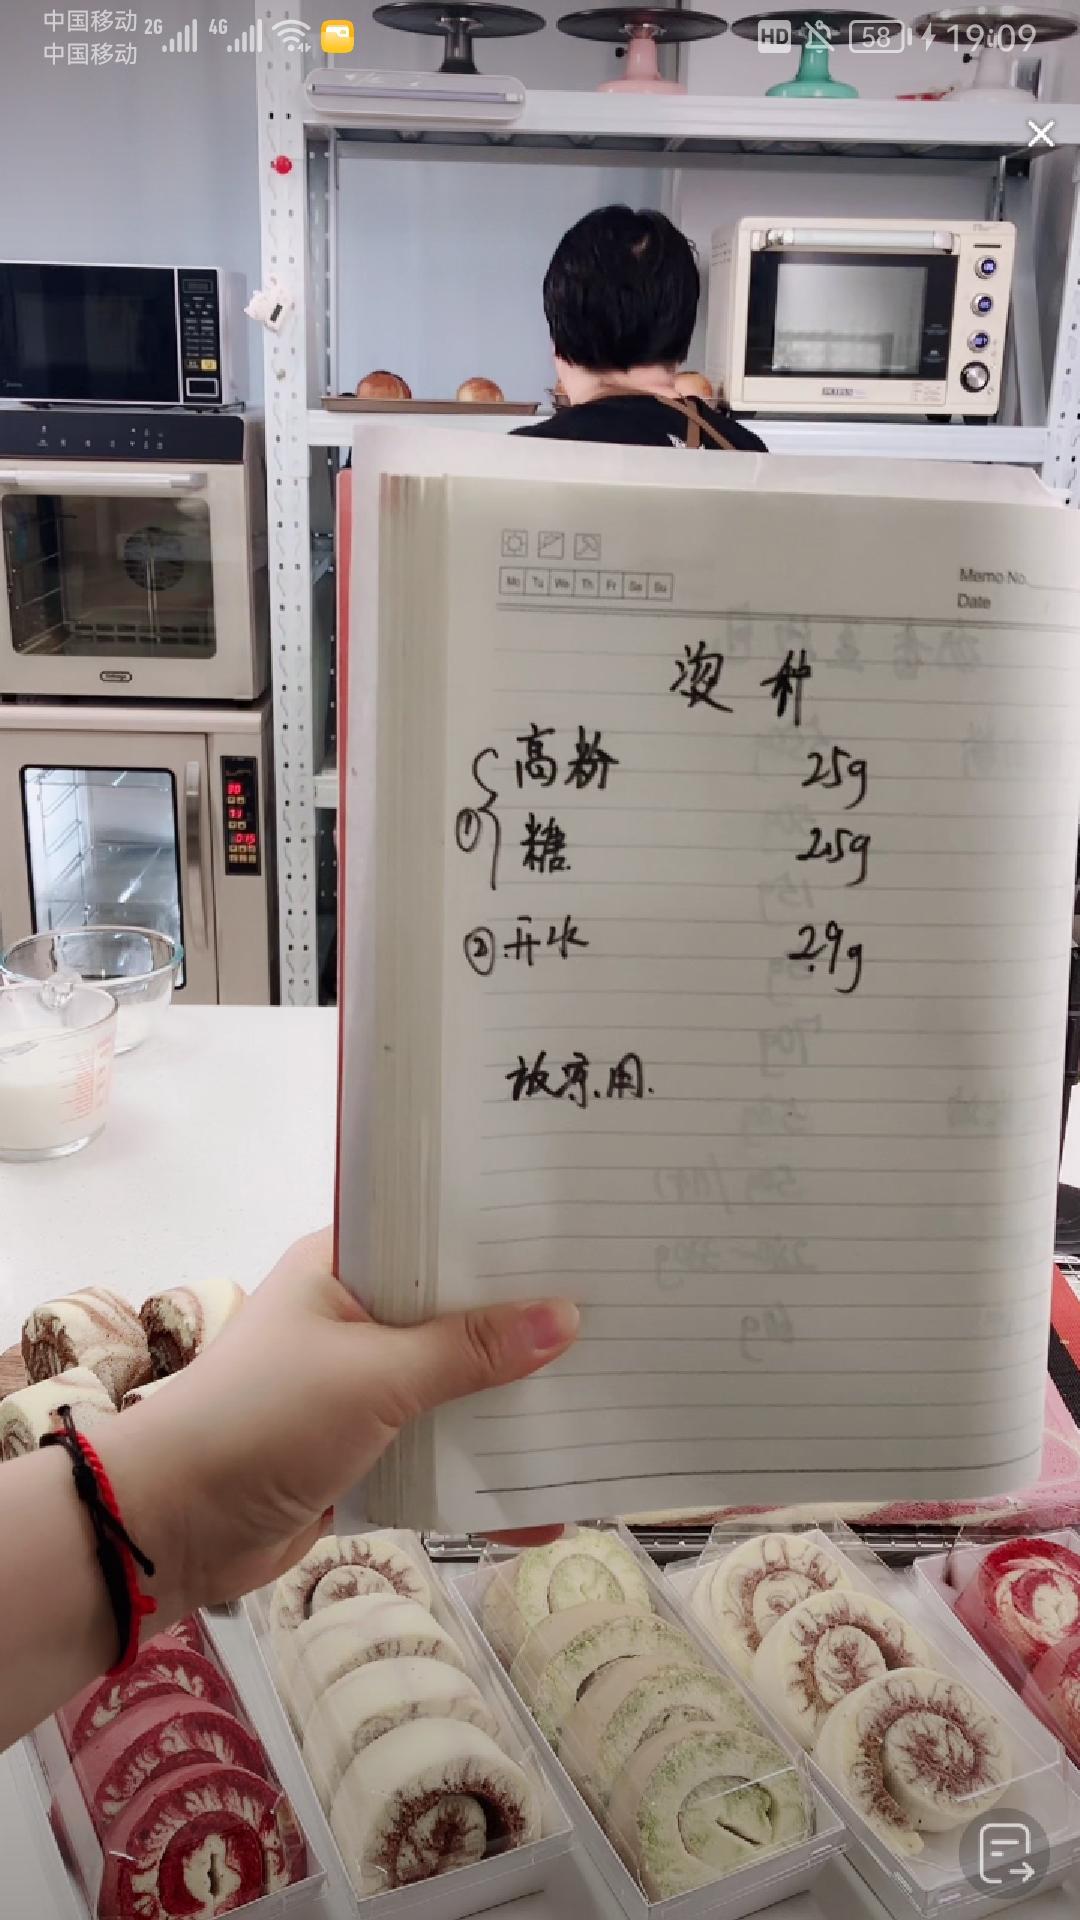 中国移动 2G 4G HD 58 19:09
中国移动
Mo Tu We Th Fr Sa Su
Memo No.
Date
烫种
高粉 25g
① 糖 2.5g
② 开水 29g
放凉.用.